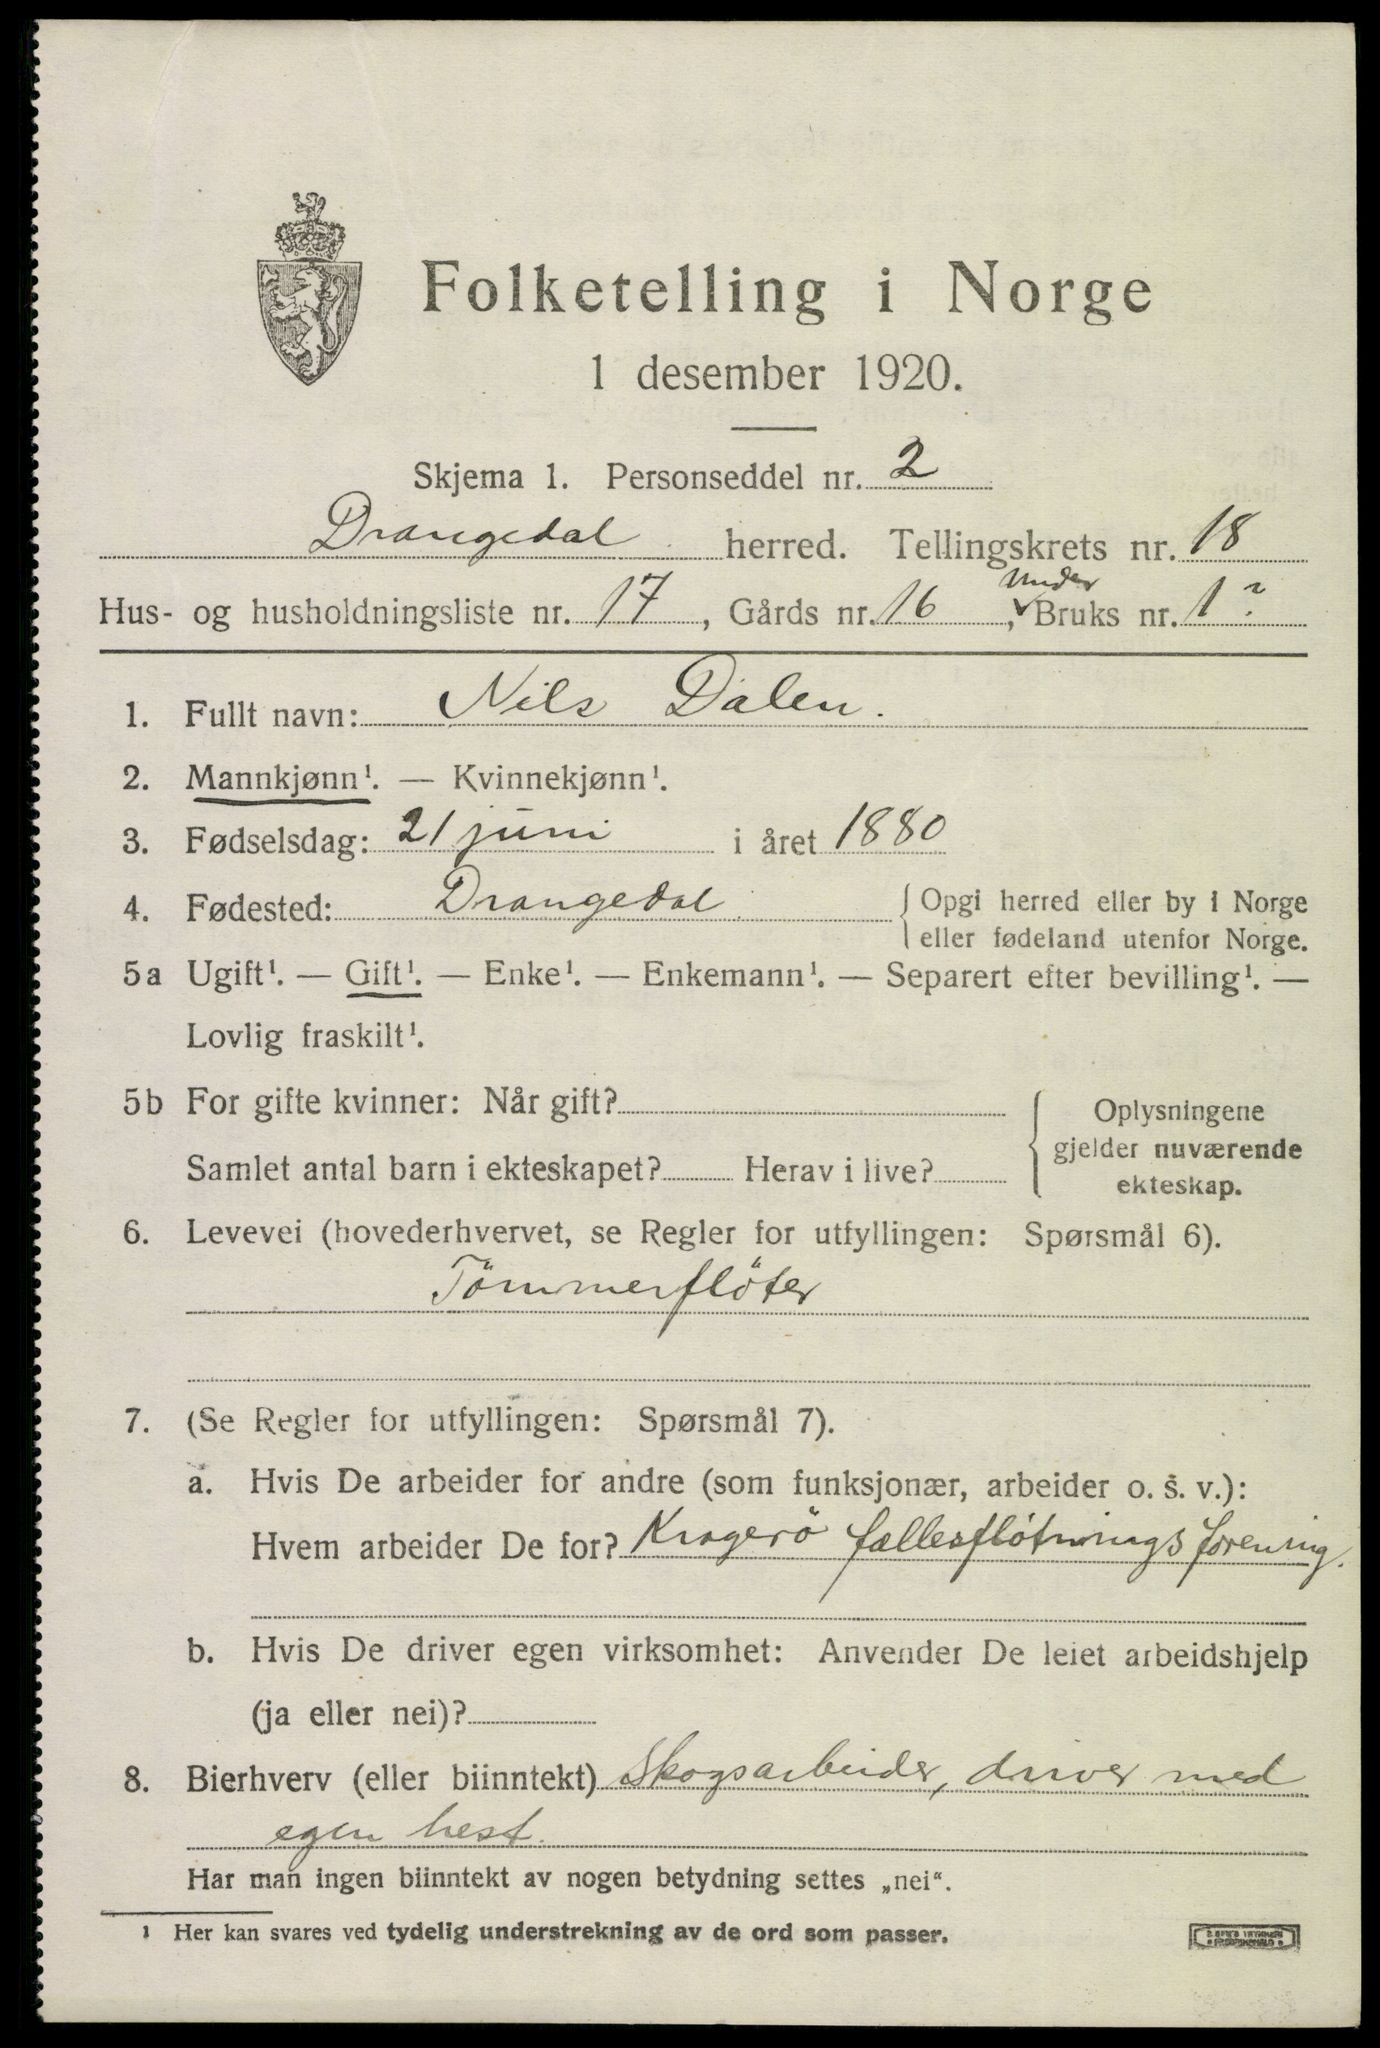 Folketelling i Norge
1 desember 1920.
Skjema 1. Personseddel nr. 2
Drangedal herred. Tellingskrets nr. 18
Under
Hus- og husholdningsliste nr. 17, Gårds nr. 16, Bruks nr. 1?
1. Fullt navn: Nils Dalen.
2. Mannkjønn¹. — Kvinnekjønn¹.
3. Fødselsdag: 21 juni i året 1880
4. Fødested: Drangedal { Opgi herred eller by i Norge
eller fødeland utenfor Norge.
5a Ugift¹. — Gift¹. — Enke¹. — Enkemann¹. — Separert efter bevilling¹. —
Lovlig fraskilt¹.
5b For gifte kvinner: Når gift?
Samlet antal barn i ekteskapet? Herav i live?
{ Oplysningene
gjelder nuværende
ekteskap.
6. Levevei (hovederhvervet, se Regler for utfyllingen: Spørsmål 6).
Tömmerflöter
7. (Se Regler for utfyllingen: Spørsmål 7).
a. Hvis De arbeider for andre (som funksjonær, arbeider o. s. v.):
Hvem arbeider De for? Kragerö fællesflötnings forening.
b. Hvis De driver egen virksomhet: Anvender De leiet arbeidshjelp
(ja eller nei)?
8. Bierhverv (eller biinntekt) Skogsarbeider, driver med
egen hest.
Har man ingen biinntekt av nogen betydning settes „nei“.
1 Her kan svares ved tydelig understrekning av de ord som passer.